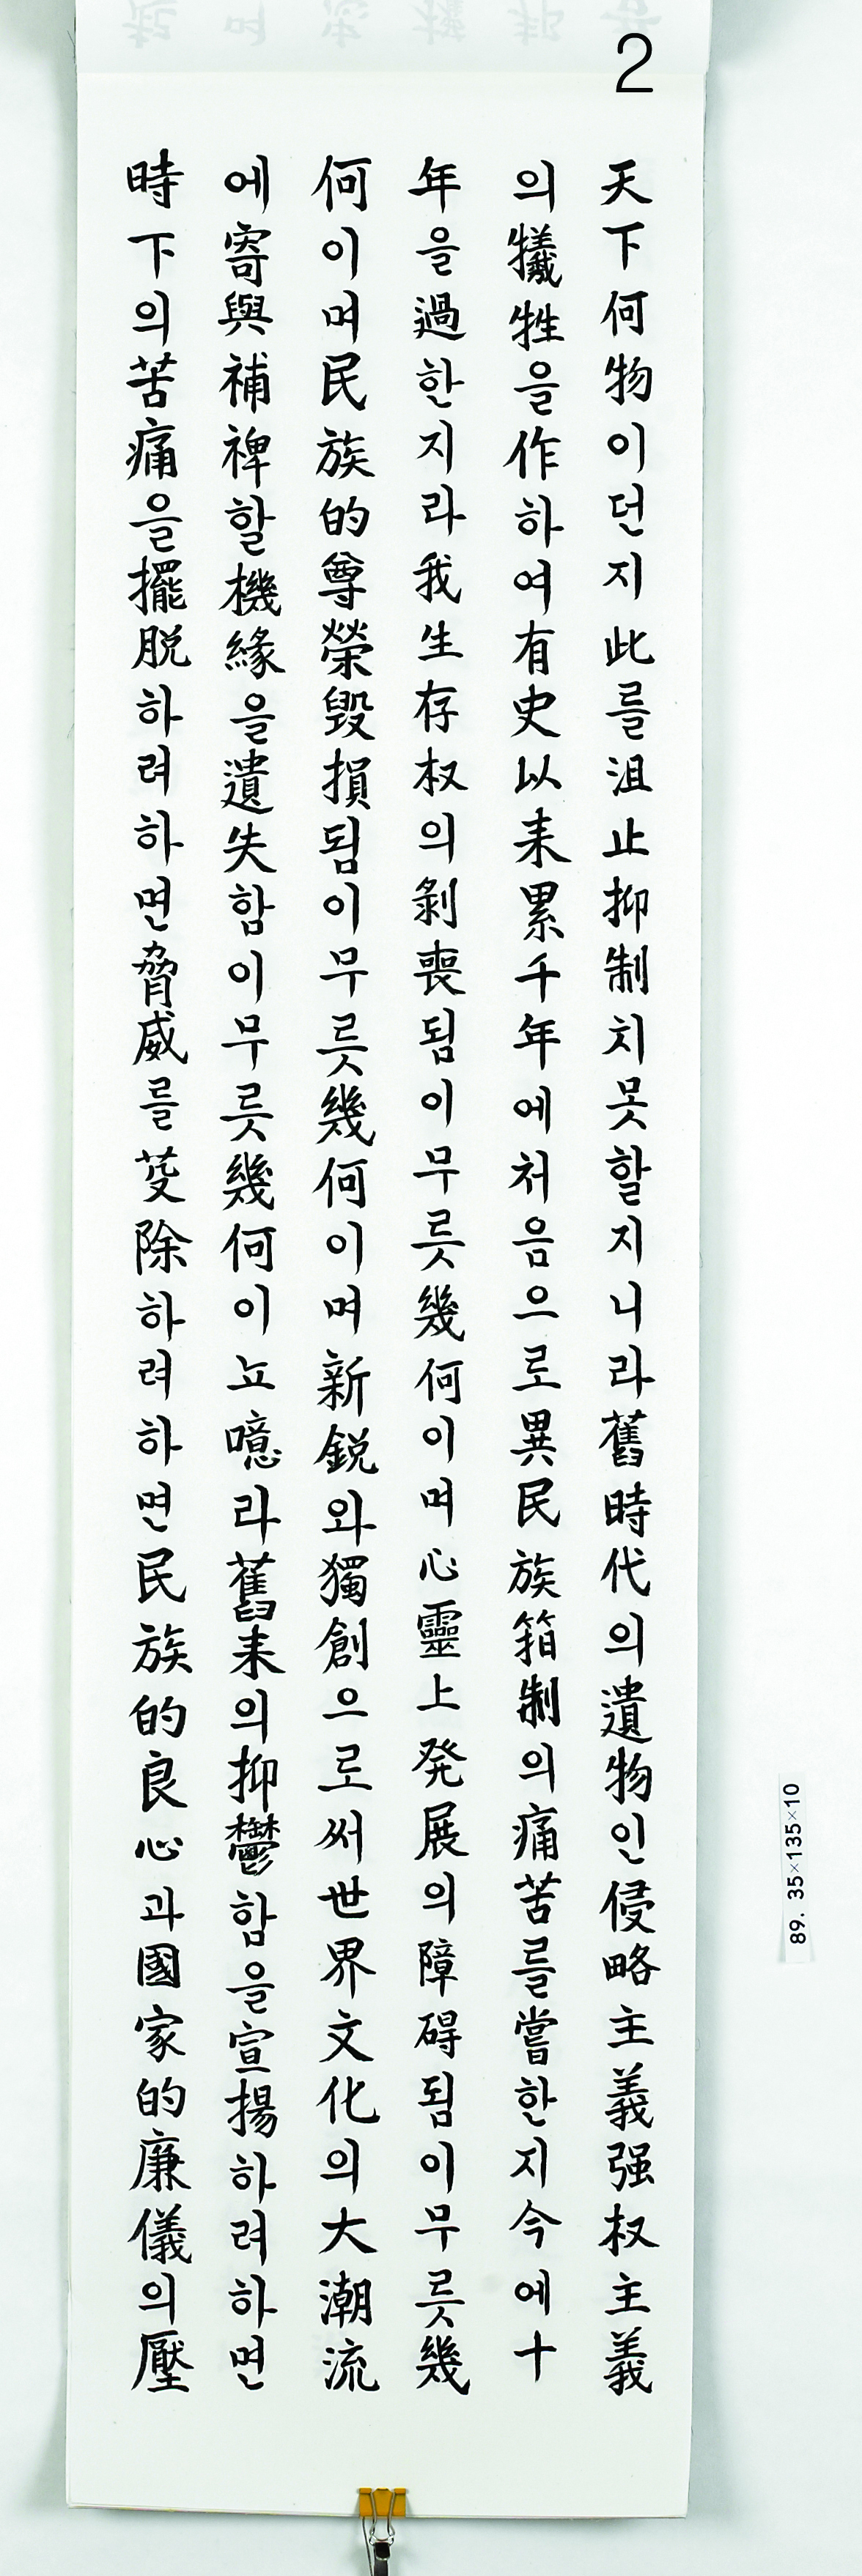 2
天下何物이던지此를沮止抑制치못할지니라舊時代의遺物인侵略主義强权主義
의犧牲을作하여有史以来累千年에처음으로異民族箝制의痛苦를嘗한지今에十
年을過한지라我生存权의剝喪됨이무릇幾何이며心靈上発展의障碍됨이무릇幾
何이며民族的尊榮毀損됨이무릇幾何이며新鋭와獨創으로써世界文化의大潮流
에寄與補裨할機緣을遺失함이무릇幾何이뇨噫라舊来의抑鬱함을宣揚하려하면
時下의苦痛을擺脱하려하면脅威를芟除하려하면民族的良心과國家的廉儀의壓
89. 35×135×10